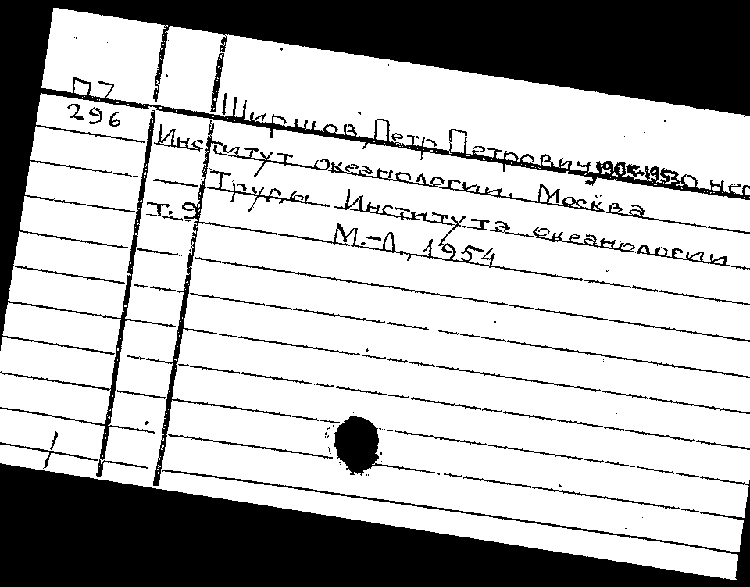 П7
296
Ширшов, Петр Петрович, 1905-1953, О нем
Институт океанологии. Москва
Труды Института океанологии
Т. 9
М.-Л., 1954